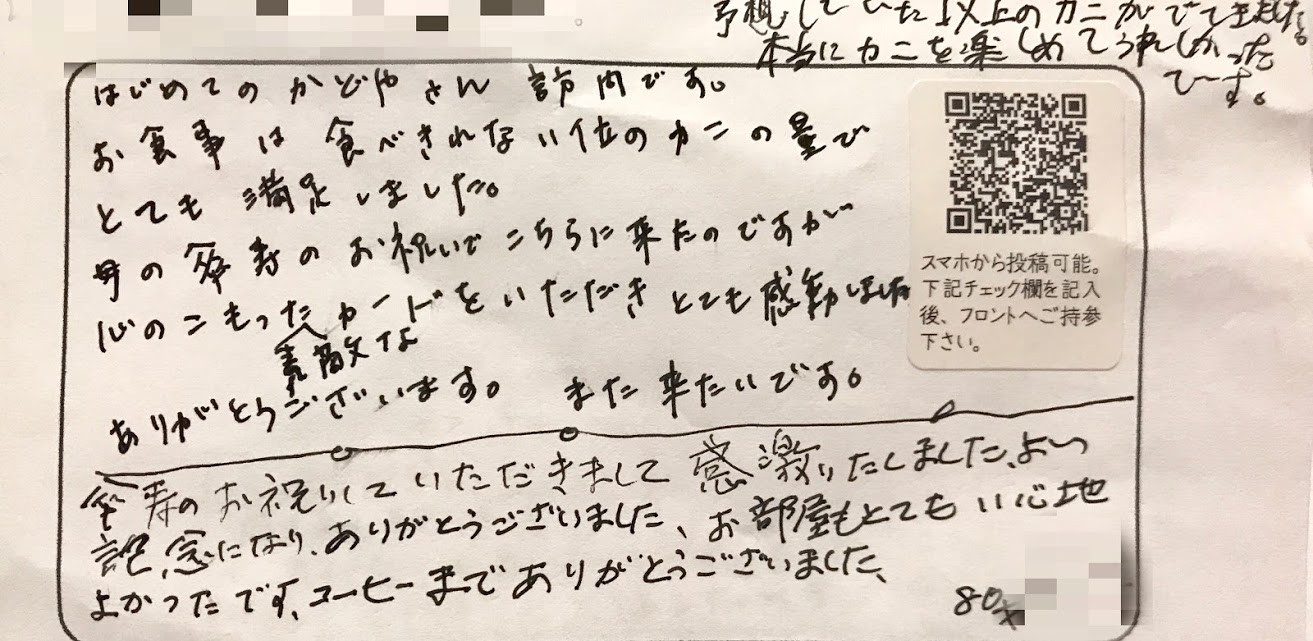 予想していた以上のカニがでてきました。
本当にカニを楽しめてうれしかった
でーす。
はじめてのかどやさん 訪問です。
お食事は 食べきれない位のカニの量で
とても 満足しました。
母の傘寿のお祝いでこちらに来たのですが
心のこもった カードをいただき とても感動しました
素敵な
ありがとうございます。 また 来たいです。
傘寿のお祝りしていただきまして 感激りたしました、よい
記念になり、ありがとうございました、お部屋もとても い心地
よかったです、コーヒーまでありがとうございました、
80才
スマホから投稿可能。
下記チェック欄を記入
後、フロントへご持参
下さい。